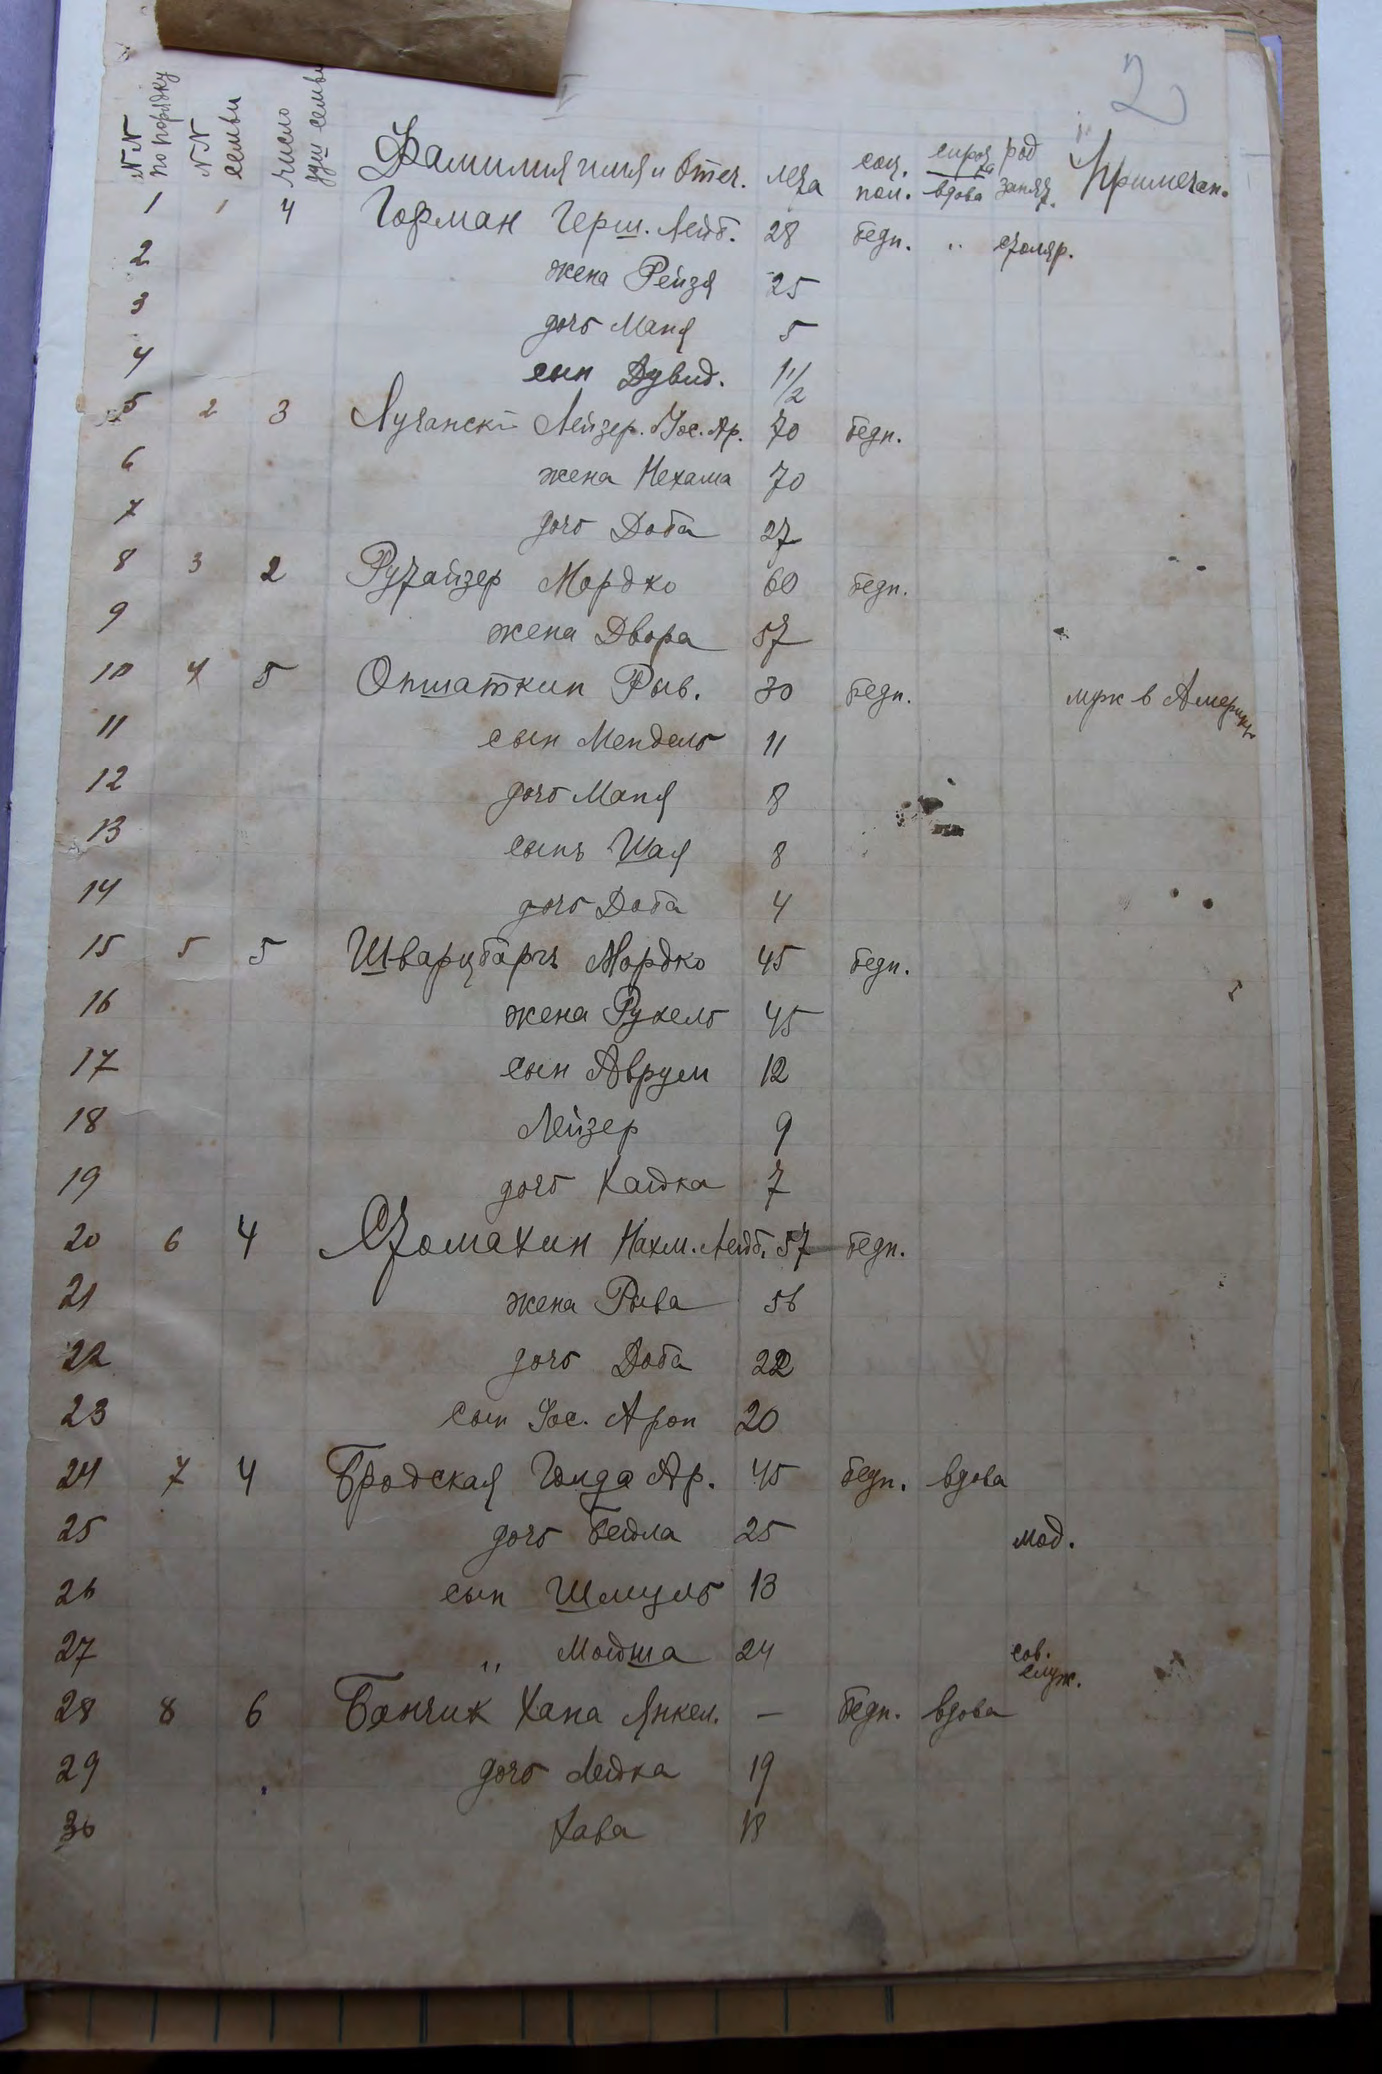 2
NN по порядку NN семьи число душ семьи Фамилия имя и Отеч. лета соц. пол. сирота вдова род занят. Примечан.
1 1 4 Гофман Герш. Лейб. 28 бедн. " столяр.
2 жена Рейзя 25
3 дочь Маня 5
4 сын Дувид. 1 1/2
5 2 3 Лучански Лейзер. Иос. Ар. 70 бедн.
6 жена Нехама 70
7 дочь Доба 27
8 3 2 Рутайзер Мордко 60 бедн.
9 жена Двора 57
10 4 5 Опшаткин Рыв. 30 бедн. муж в Америке
11 сын Мендель 11
12 дочь Маня 8
13 сынъ Шая 8
14 дочь Доба 4
15 5 5 Шварцбаргъ Мордко 45 бедн.
16 жена Рухель 45
17 сын Аврум 12
18 Лейзер 9
19 дочь Хайка 7
20 6 4 Стомахин Нахм. Лейб. 57 бедн.
21 жена Рыва 56
22 дочь Доба 22
23 сын Иос. Арон 20
24 7 4 Бродская Голда Ар. 45 бедн. вдова
25 дочь Бейла 25 мод.
26 сын Шмуль 13
27 " Мойша 24 сов. служ.
28 8 6 Банчик Хана Янкел. — бедн. вдова
29 дочь Лейка 19
30 Хава 18